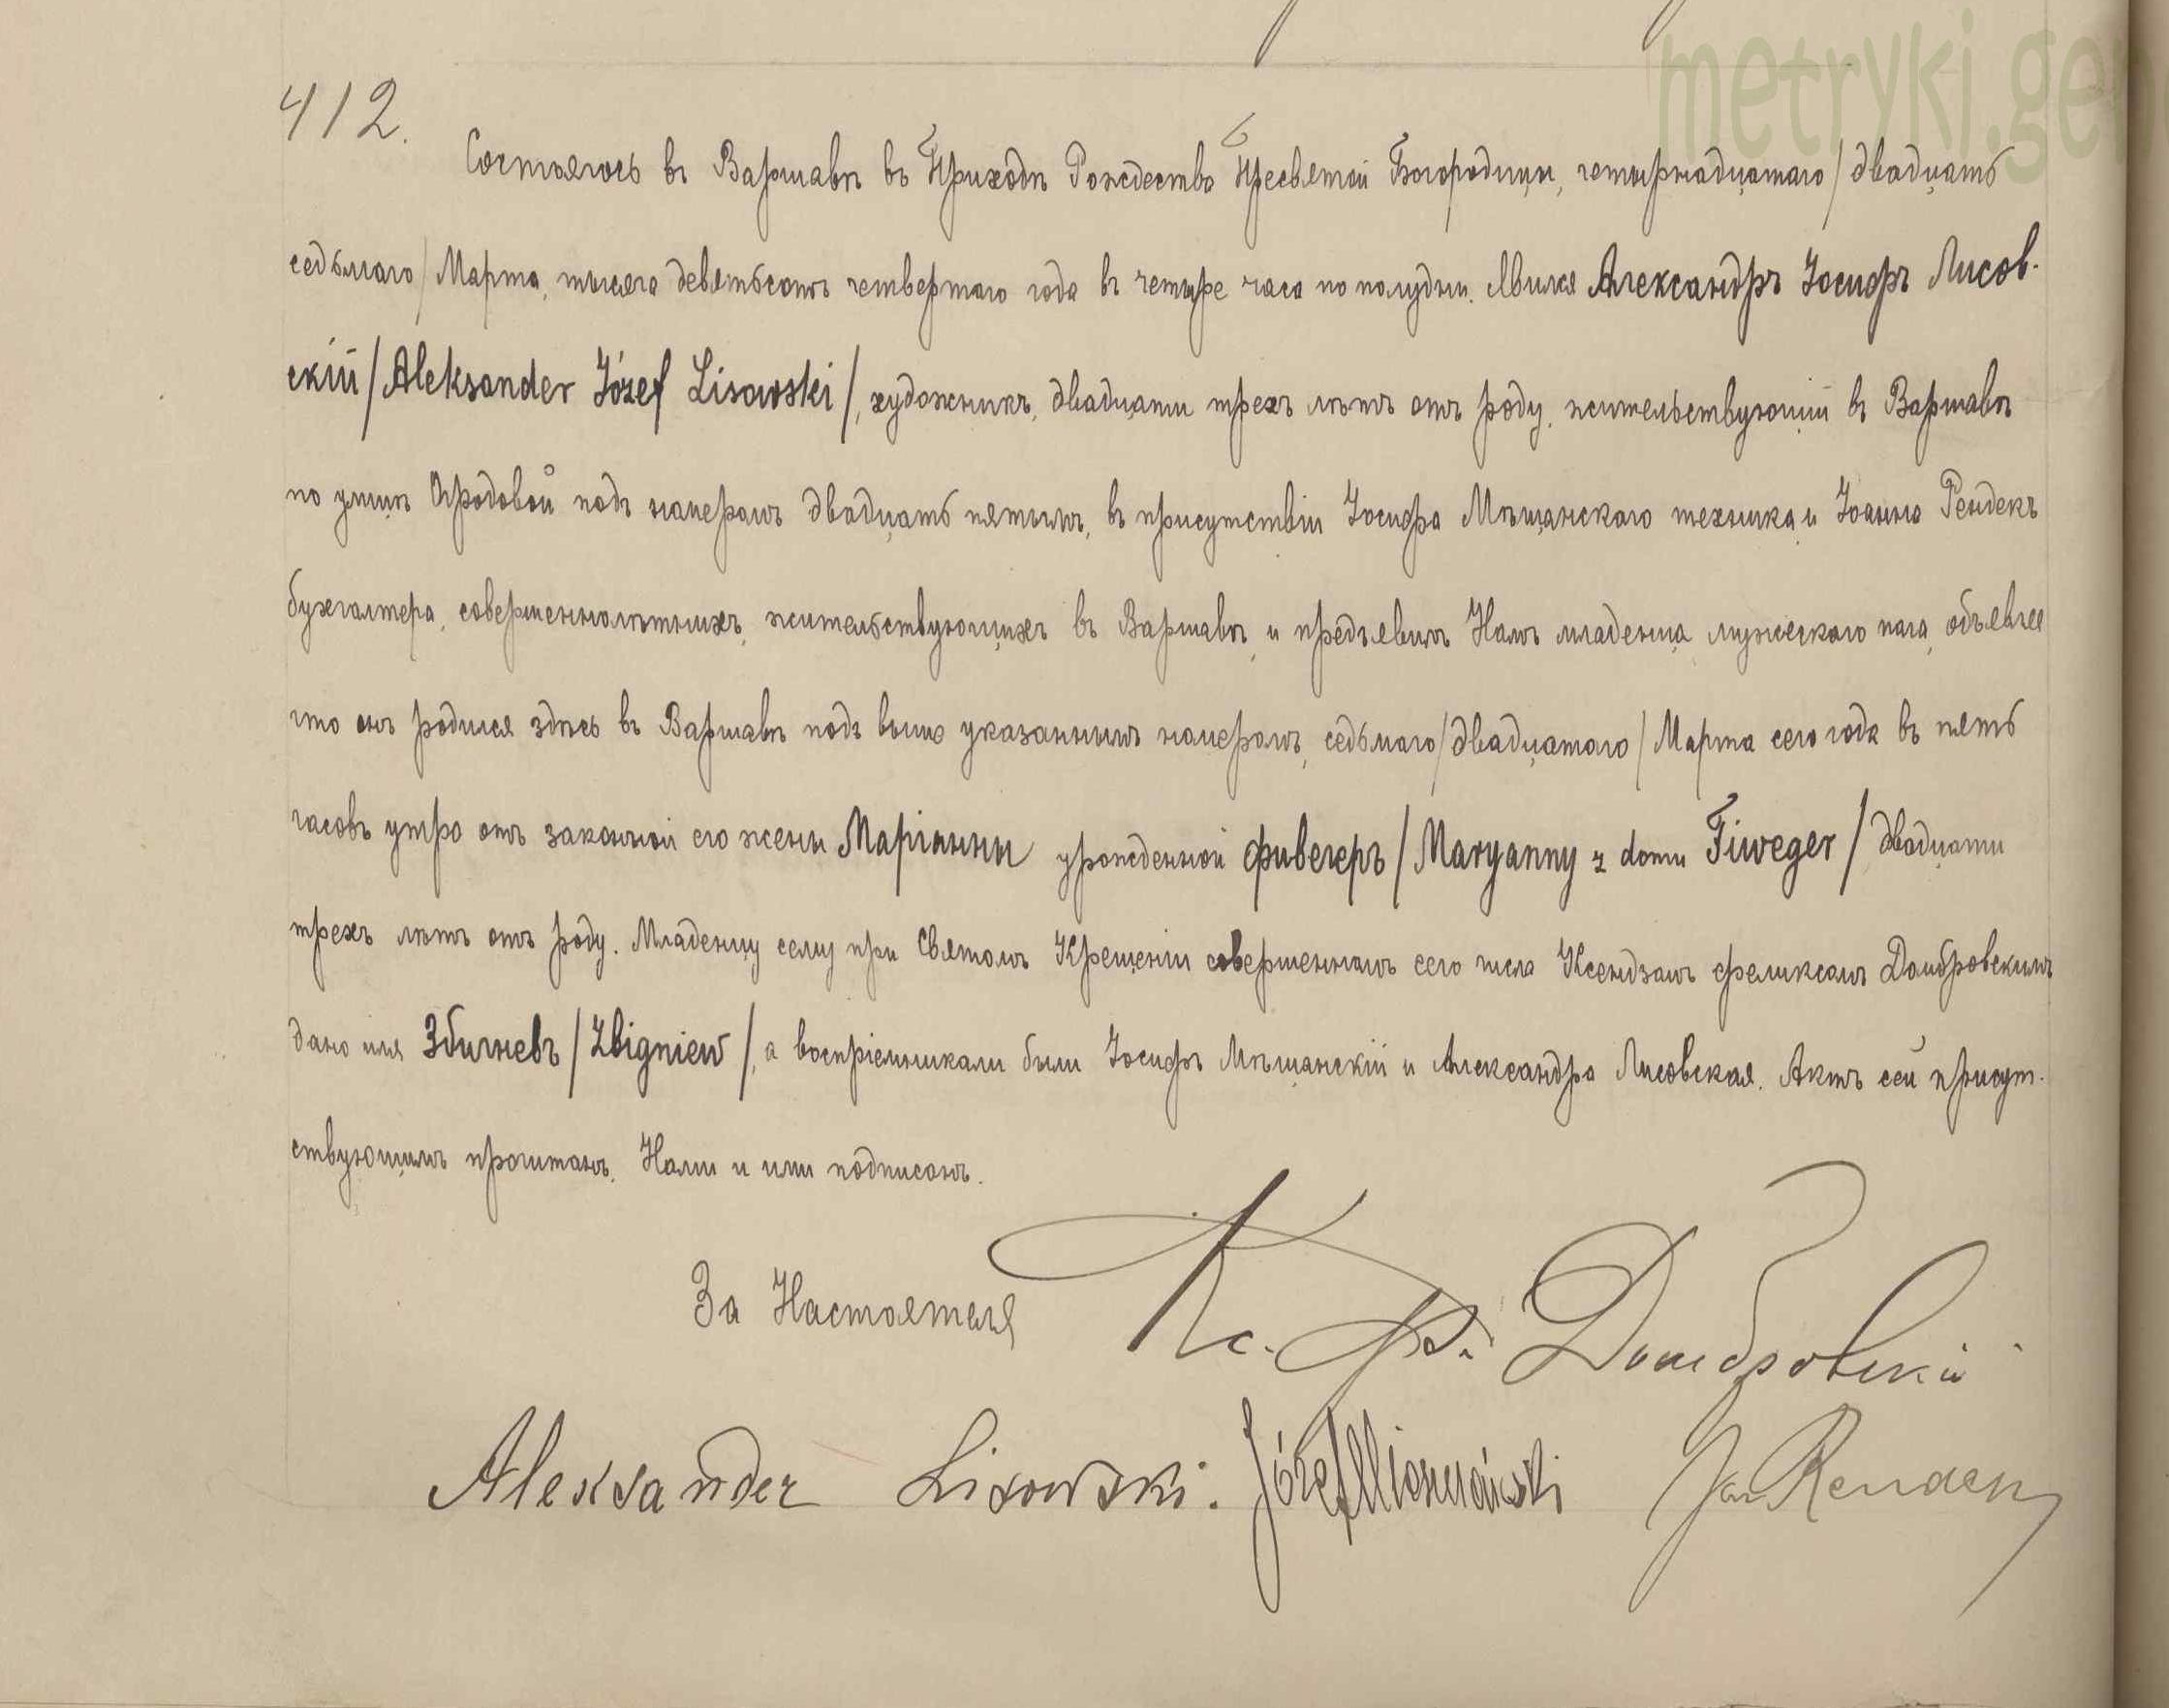 metryki.gen
412.
Состоялось въ Варшавѣ въ Приходѣ Рождества Пресвятой Богородицы, четырнадцатаго / двадцать
седьмаго / Марта, тысяча девятьсотъ четвертаго года въ четыре часа по полудни. Явился Александръ Іосифъ Лисов-
скій / Aleksander Józef Lisowski /, художникъ, двадцати трехъ лѣтъ отъ роду, жительствующій въ Варшавѣ
по улицѣ Огродовой подъ номеромъ двадцать пятымъ, въ присутствіи Іосифа Мѣщанскаго техника и Іоанна Рендекъ
бухгалтера, совершеннолѣтнихъ, жительствующихъ въ Варшавѣ, и предъявилъ Намъ младенца мужескаго пола, объявляя
что онъ родился здѣсь въ Варшавѣ подъ выше указаннымъ номеромъ, седьмаго / двадцатаго / Марта сего года въ пять
часовъ утра отъ законной его жены Маріанны урожденной Фивегеръ / Maryanny z domu Fiweger / двадцати
трехъ лѣтъ отъ роду. Младенцу сему при Святомъ Крещеніи совершенномъ сего числа Ксендзомъ Феликсомъ Домбровскимъ
дано имя Збигневъ / Zbigniew /, а воспріемниками были Іосифъ Мѣщанскій и Александра Лисовская. Актъ сей присут-
ствующимъ прочитанъ, Нами и ими подписанъ.
За Настоятеля Кс. Ф. Домбровскій
Aleksander Lisowski. Józef Jan Rendek